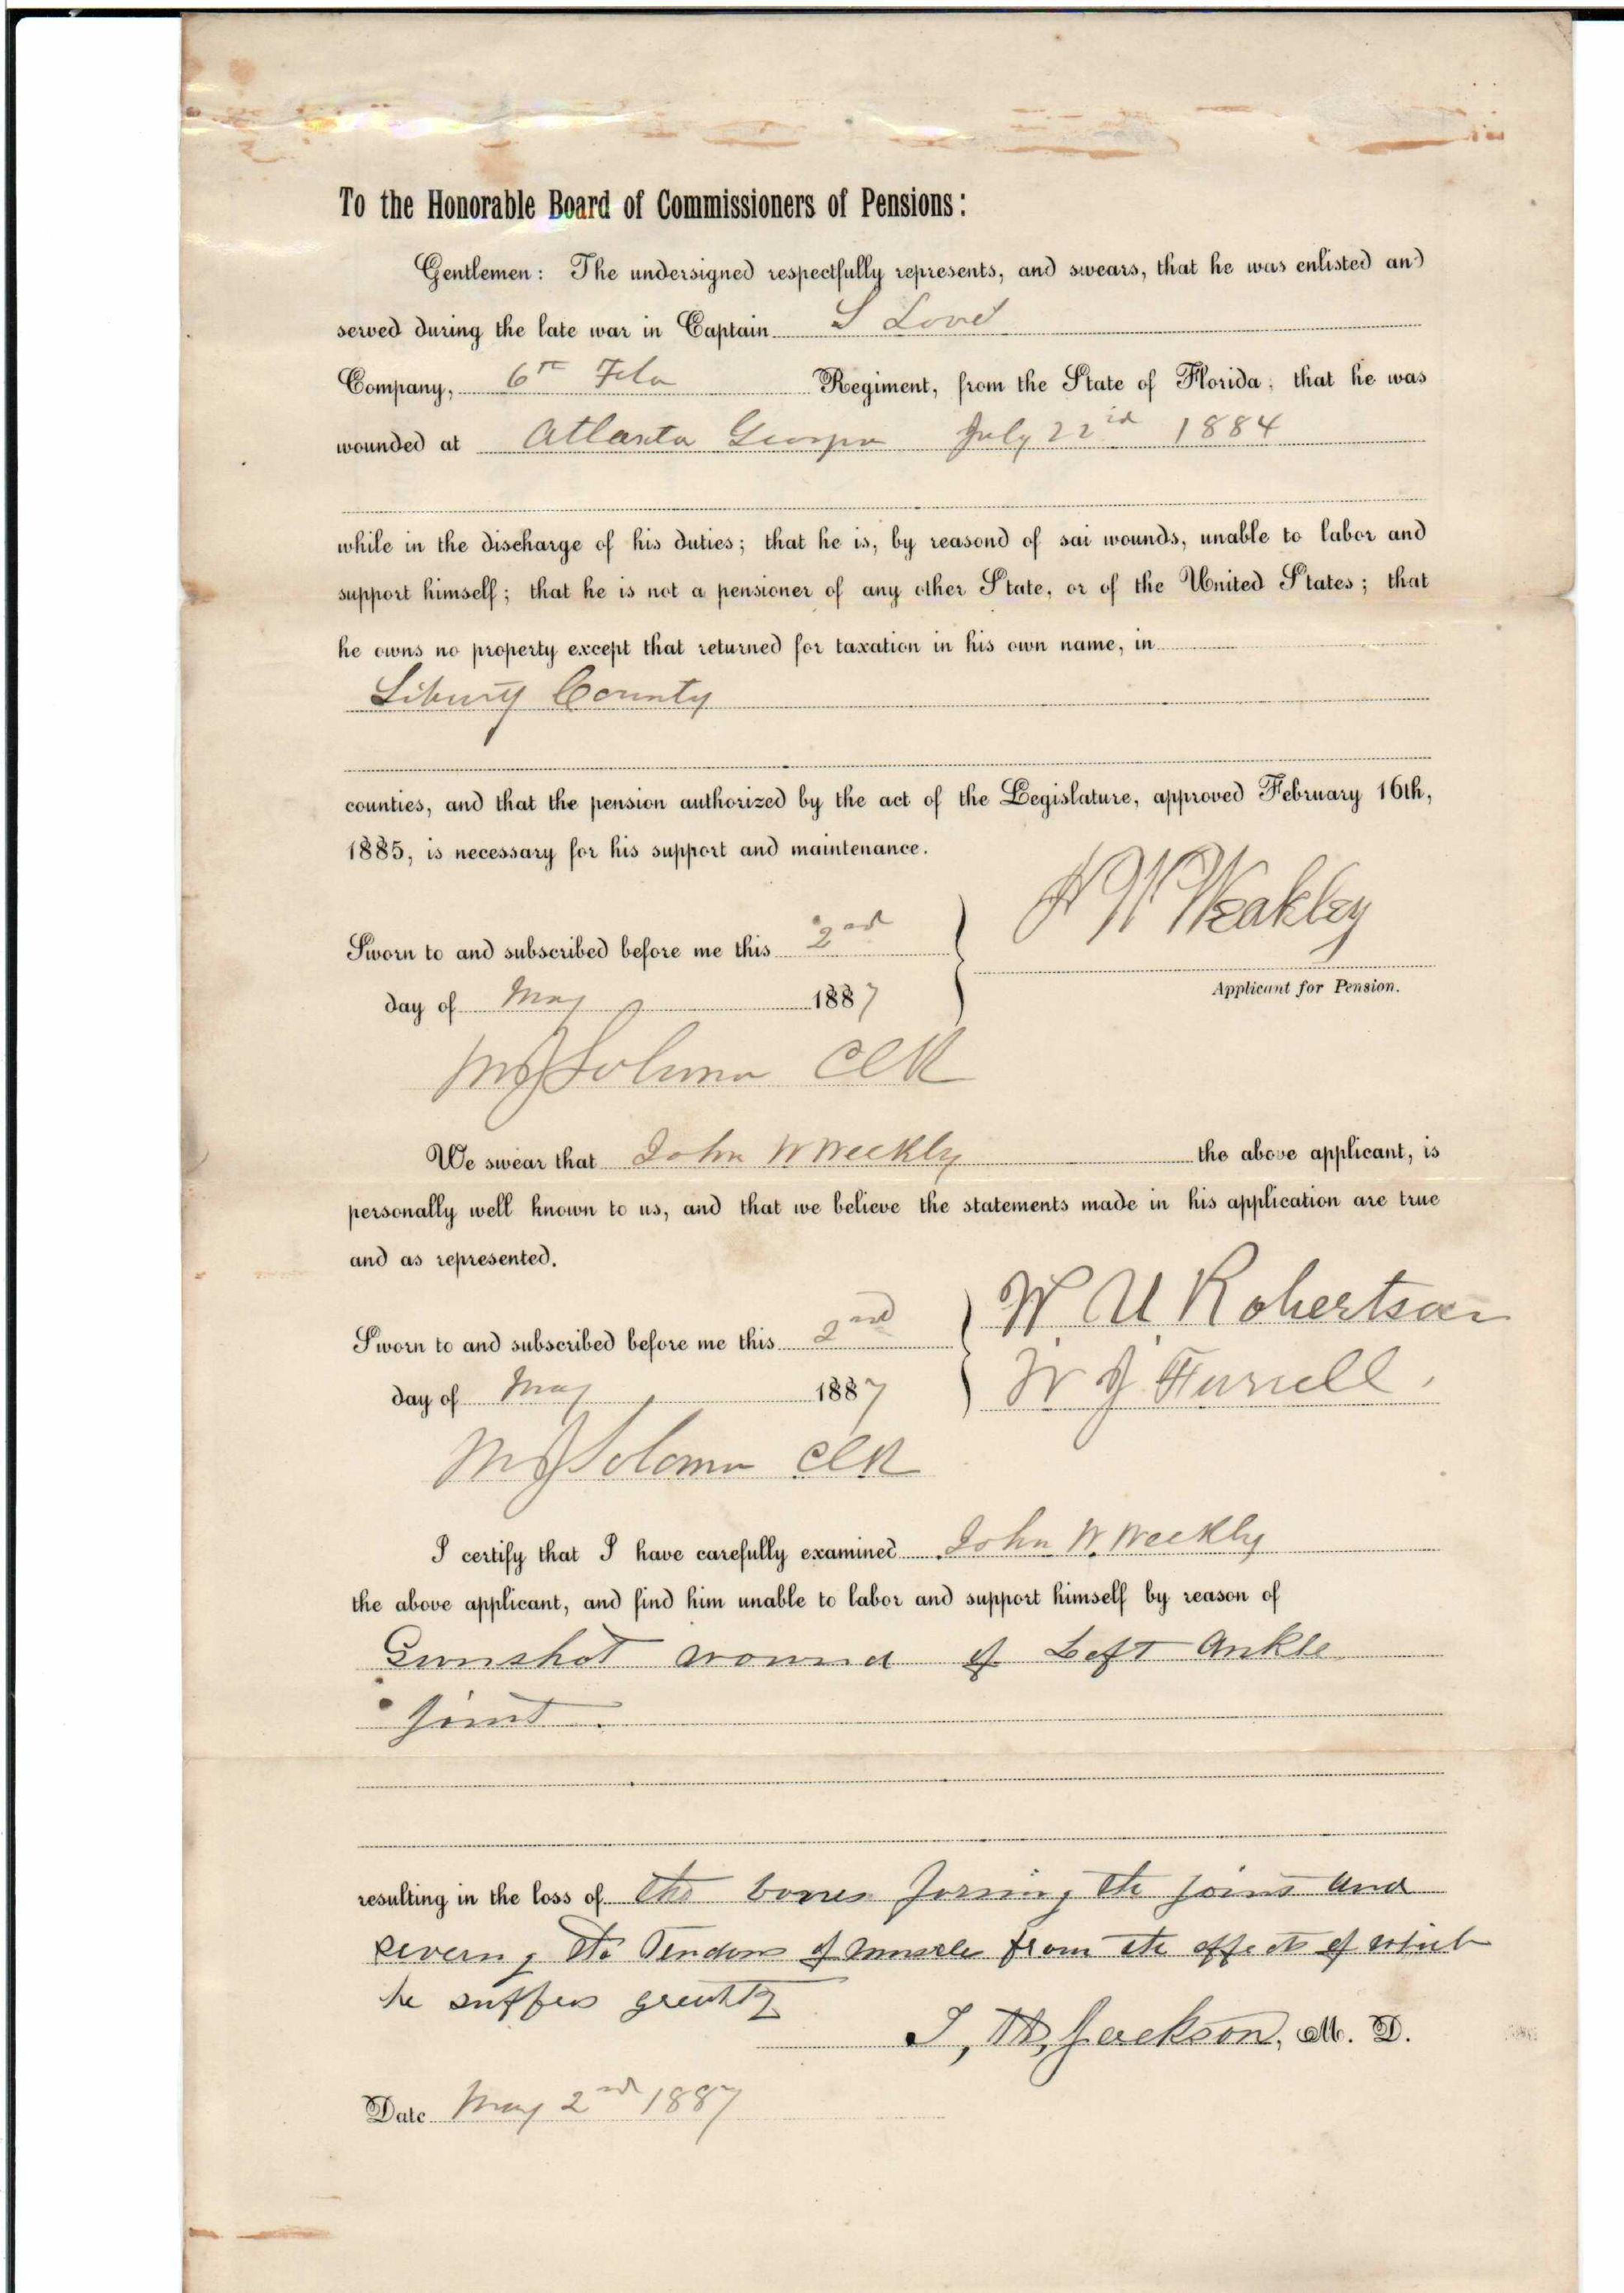 To the Honorable Board of Commissioners of Pensions:
Gentlemen: The undersigned respectfully represents, and swears, that he was enlisted and
served during the late war in Captain S Love
Company, 6th Fla Regiment, from the State of Florida; that he was
wounded at Atlanta Georgia July 22nd 1884
while in the discharge of his duties; that he is, by reasond of sai wounds, unable to labor and
support himself; that he is not a pensioner of any other State, or of the United States; that
he owns no property except that returned for taxation in his own name, in
Liberty County
counties, and that the pension authorized by the act of the Legislature, approved February 16th,
1885, is necessary for his support and maintenance.
J W Weakley
Applicant for Pension.
Sworn to and subscribed before me this 2nd
day of May 1887
Solomon Clk
We swear that John W Weekly the above applicant, is
personally well known to us, and that we believe the statements made in his application are true
and as represented.
Sworn to and subscribed before me this 2nd
day of May 1887
W U Robertson
W J
Solomon Clk
I certify that I have carefully examined John W. Weekly
the above applicant, and find him unable to labor and support himself by reason of
Gunshot wound of Left Ankle
joint.
resulting in the loss of the bones forming the joint and
severing the Tendons of muscle from the effects of which
he suffers greatly
Jackson, M. D.
Date May 2nd 1887